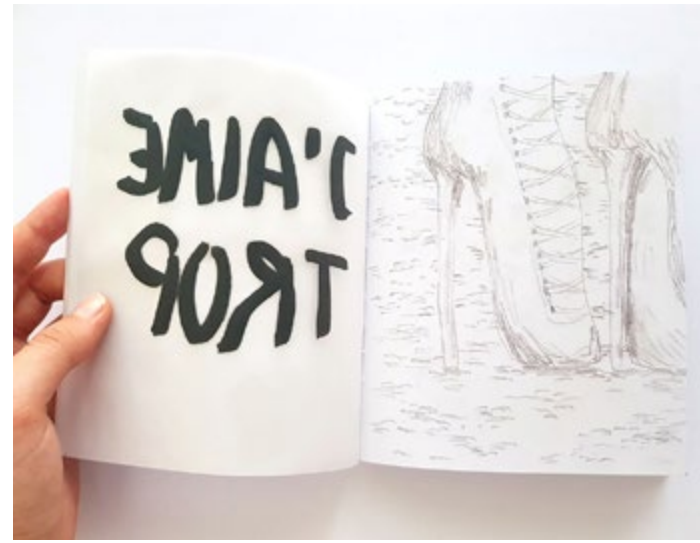 J'AIME
TROP